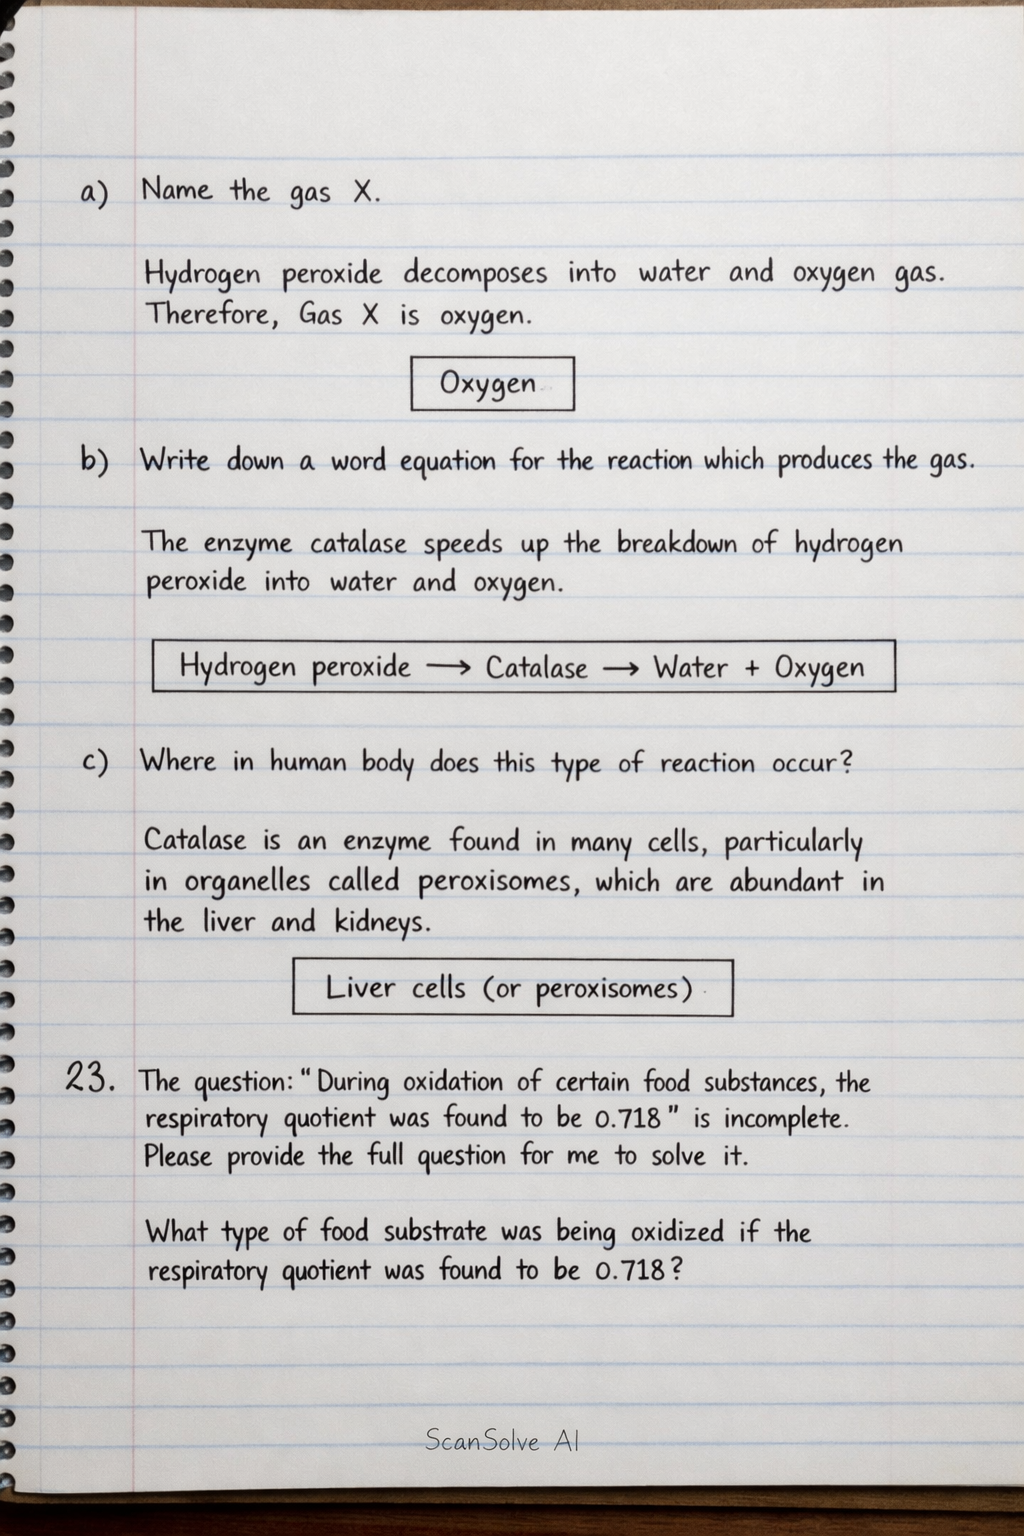 a) Name the gas X.
Hydrogen peroxide decomposes into water and oxygen gas.
Therefore, Gas X is oxygen.
Oxygen
b) Write down a word equation for the reaction which produces the gas.
The enzyme catalase speeds up the breakdown of hydrogen
peroxide into water and oxygen.
Hydrogen peroxide ⟶ Catalase ⟶ Water + Oxygen
c) Where in human body does this type of reaction occur?
Catalase is an enzyme found in many cells, particularly
in organelles called peroxisomes, which are abundant in
the liver and kidneys.
Liver cells (or peroxisomes)
23. The question: "During oxidation of certain food substances, the
respiratory quotient was found to be 0.718" is incomplete.
Please provide the full question for me to solve it.
What type of food substrate was being oxidized if the
respiratory quotient was found to be 0.718?
ScanSolve AI